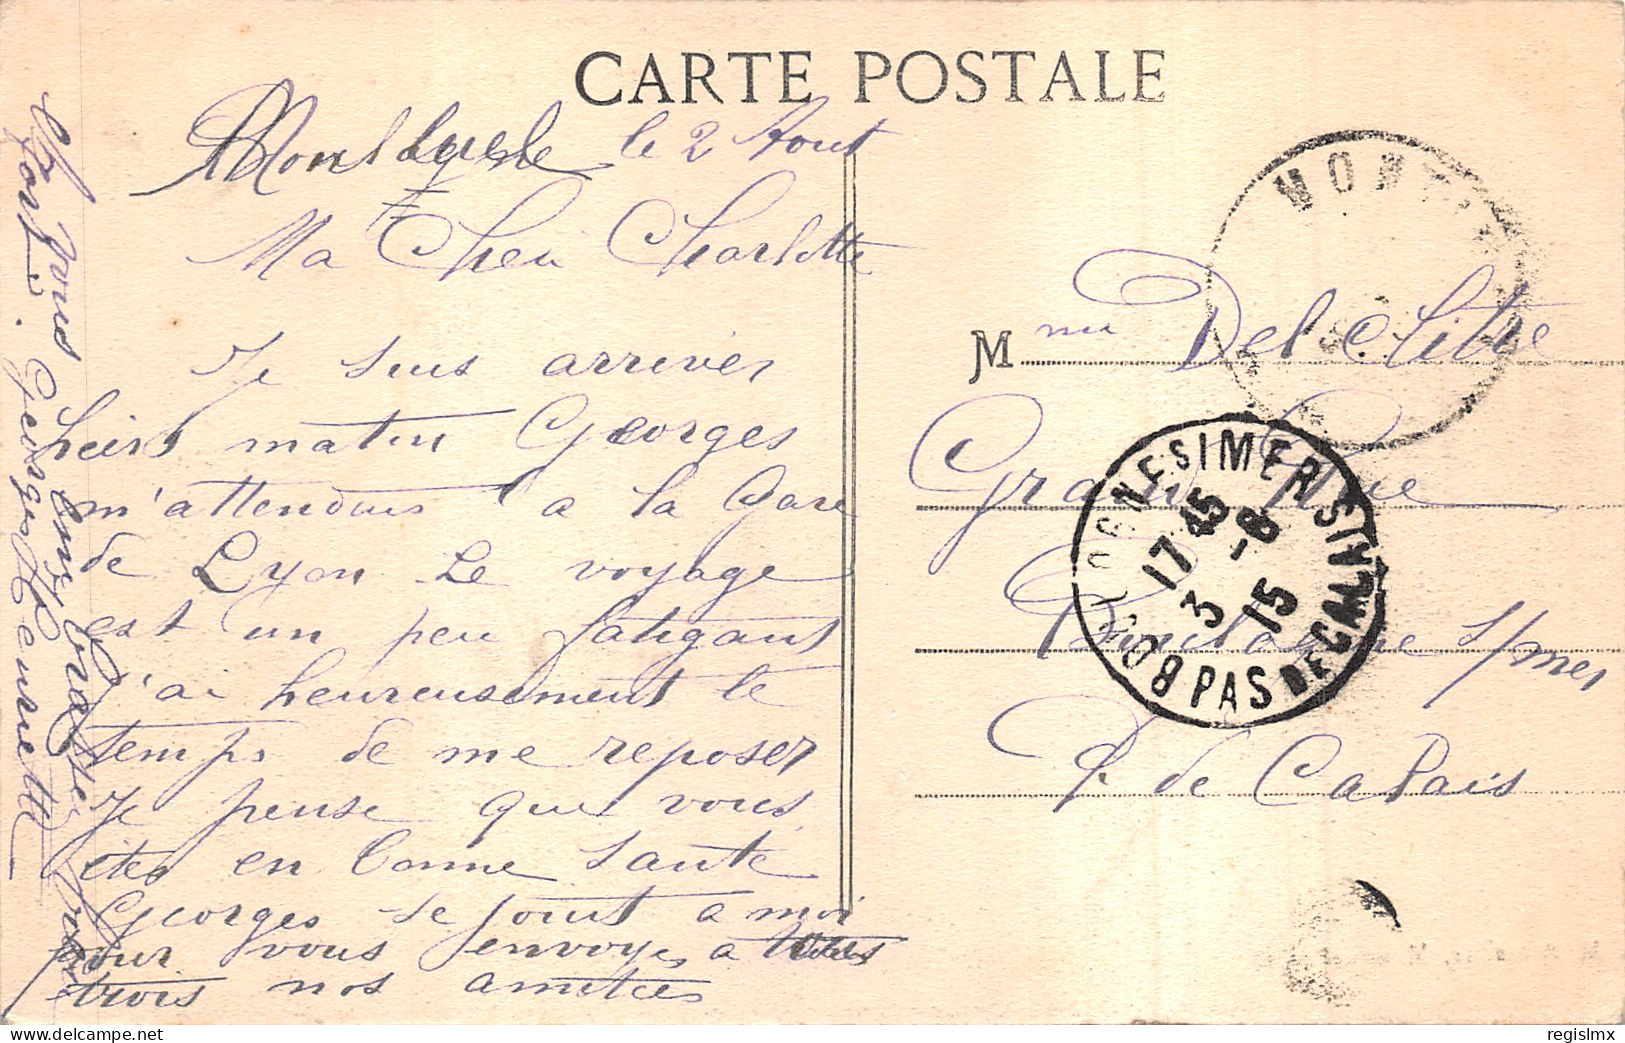 CARTE POSTALE
le 2 Aout
Ma Cher Charlotte
Je suis arriver
heirs matin Georges
m'attendais a la Gare
de Lyon Le voyage
est un peu fatigant
J'ai heureusement le
temps de me reposer
Je pense que vous
ites en bonne sante
Georges se joint a moi
pour vous envoyer a toutes
trois nos amities
vous embrasse
fort. Georges Henriette
M me Delclitre
Grande Rue
Boulogne s/mer
P. de Calais
MONT
BOULOGNE SI MER SI
17 45
3 -8
15
PAS DE CALAIS
regislmx